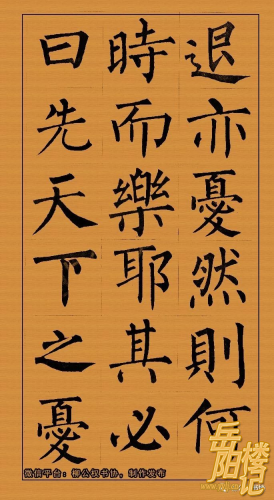 退亦憂然則何
時而樂耶其必
曰先天下之憂
岳陽楼记
微信平台：柳公权书协，制作发布